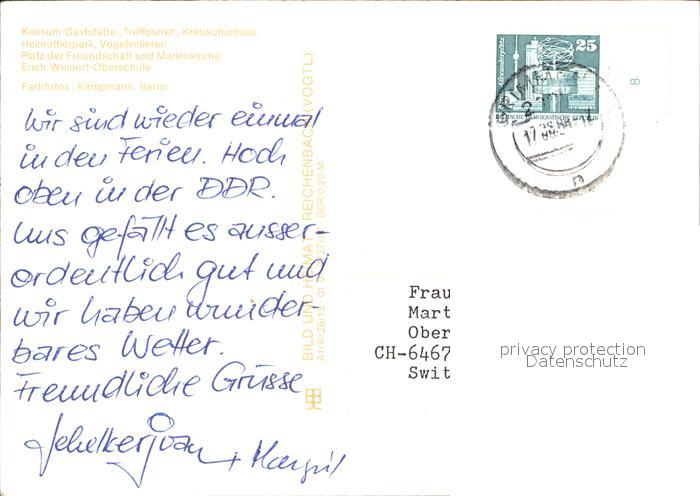 Konsum-Gaststätte „Treffpunkt", Kreiskulturhaus
Heimattierpark, Vogelvolieren
Platz der Freundschaft und Marienkirche
Erich-Weinert-Oberschule
Farbfotos: Kampmann, Berlin
Wir sind wieder einmal
in den Ferien. Hoch
oben in der DDR.
Uns gefällt es ausser-
ordentlich gut und
wir haben wunder-
bares Wetter.
Freundliche Grüsse
+ Margrit
BILD UND HEIMAT REICHENBACH (VOGTL)
A1/III/26/13
25
8
Frau
Mart
Ober
CH-6467
Swit
privacy protection
Datenschutz